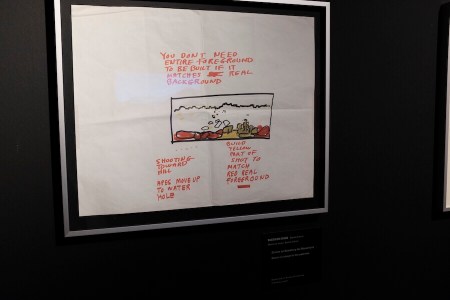 YOU DON'T NEED
ENTIRE FOREGROUND
TO BE BUILT IF IT
MATCHES REAL
BACKGROUND
SHOOTING
TOWARD
HILL
APES MOVE UP
TO WATER
HOLE
BUILD
YELLOW
PART OF
SHOT TO
MATCH
RED REAL
FOREGROUND